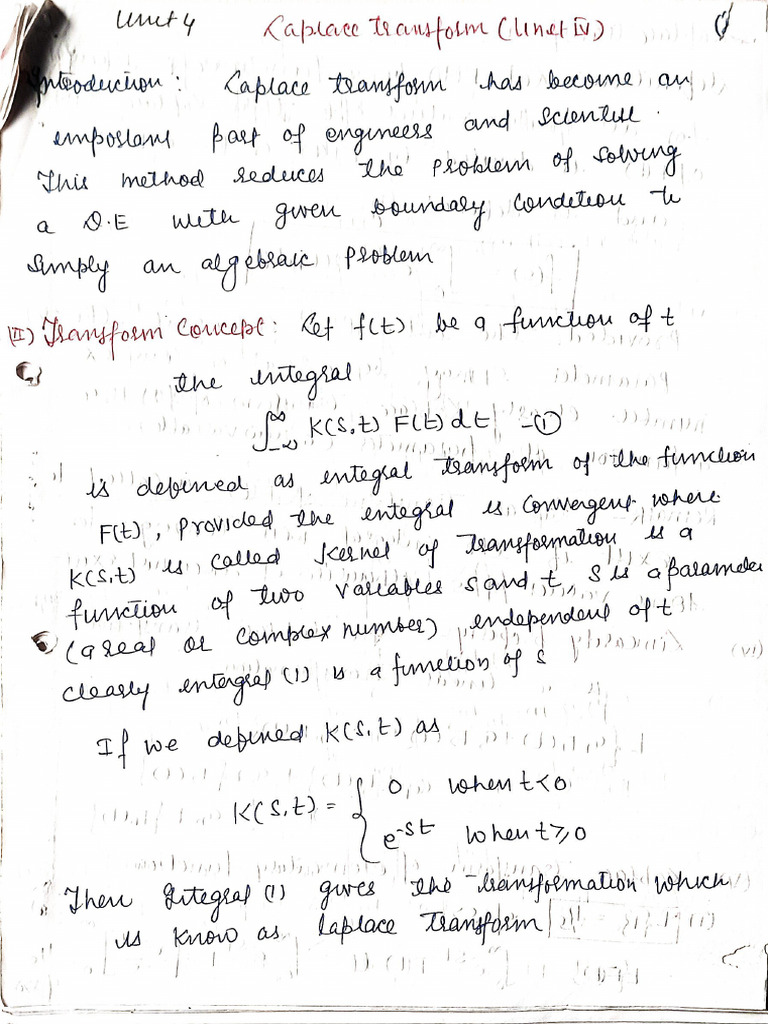 Unit 4 Laplace Transform (Unit IV)
Introduction: Laplace transform has become an
important part of engineers and scientist.
This method reduces the problem of solving
a D.E with given boundary condition to
simply an algebraic problem
(II) Transform Concept: Let f(t) be a function of t
the integral
∫_{-∞}^{∞} K(s,t) F(t) dt -①
is defined as integral transform of the function
F(t), provided the integral is convergent where
K(s,t) is called kernel of transformation is a
function of two variables s and t, s is a parameter
(a real or complex number) independent of t
clearly intergral (1) is a function of s
If we defined K(s,t) as
K(s,t) = { 0, when t<0
e^{-st} when t≥0
Then Integral (1) gives the transformation which
is know as Laplace Transform